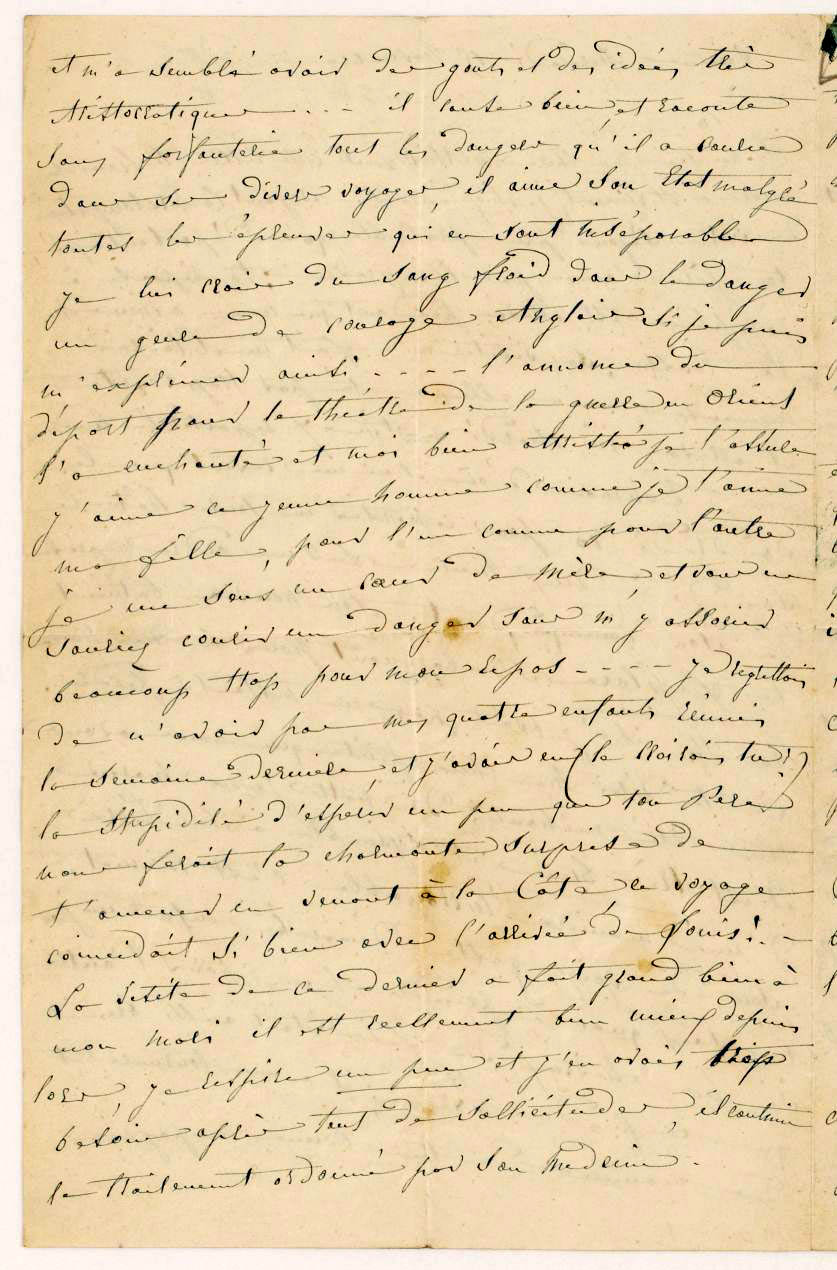 et m'a semblé avoir des gouts et des idées très
Aristocratiques - - - il cause bien, et raconte
sans forfanterie tout les dangers qu'il a courru
dans ses divers voyages, il aime son Etat malgré
toutes les épreuves qui en sont inséparables
je lui crois du sang froid dans le danger
un genre de courage Anglais si je puis
m'exprimer ainsi - - - - l'annonce du
départ pour le théâtre de la guerre en Orient
l'a enchanté et moi bien attristée je t'assure
j'aime ce jeune homme comme je t'aime
ma fille, pour l'un comme pour l'autre
je me sens un cœur de Mère et vous ne
sauriez courir un danger sans m'y associer
beaucoup trop pour mon repos - - - - je regrettais
de n'avoir pas mes quatre enfants réunis
la semaine dernière, et j'avais eu (le croirais tu?)
la stupidité d'espérer un peu que ton Pere
nous feroit la charmante surprise de
t'amener en venant à la Côte, ce voyage
coincidait si bien avec l'arrivée de Louis! -
La visite de ce dernier a fait grand bien à
mon mari il est reellement bien mieux depuis
lors, je respire un peu et j'en avais trop
besoin après tant de sollicitudes, il continue
le traitement ordonné par son Medecin.